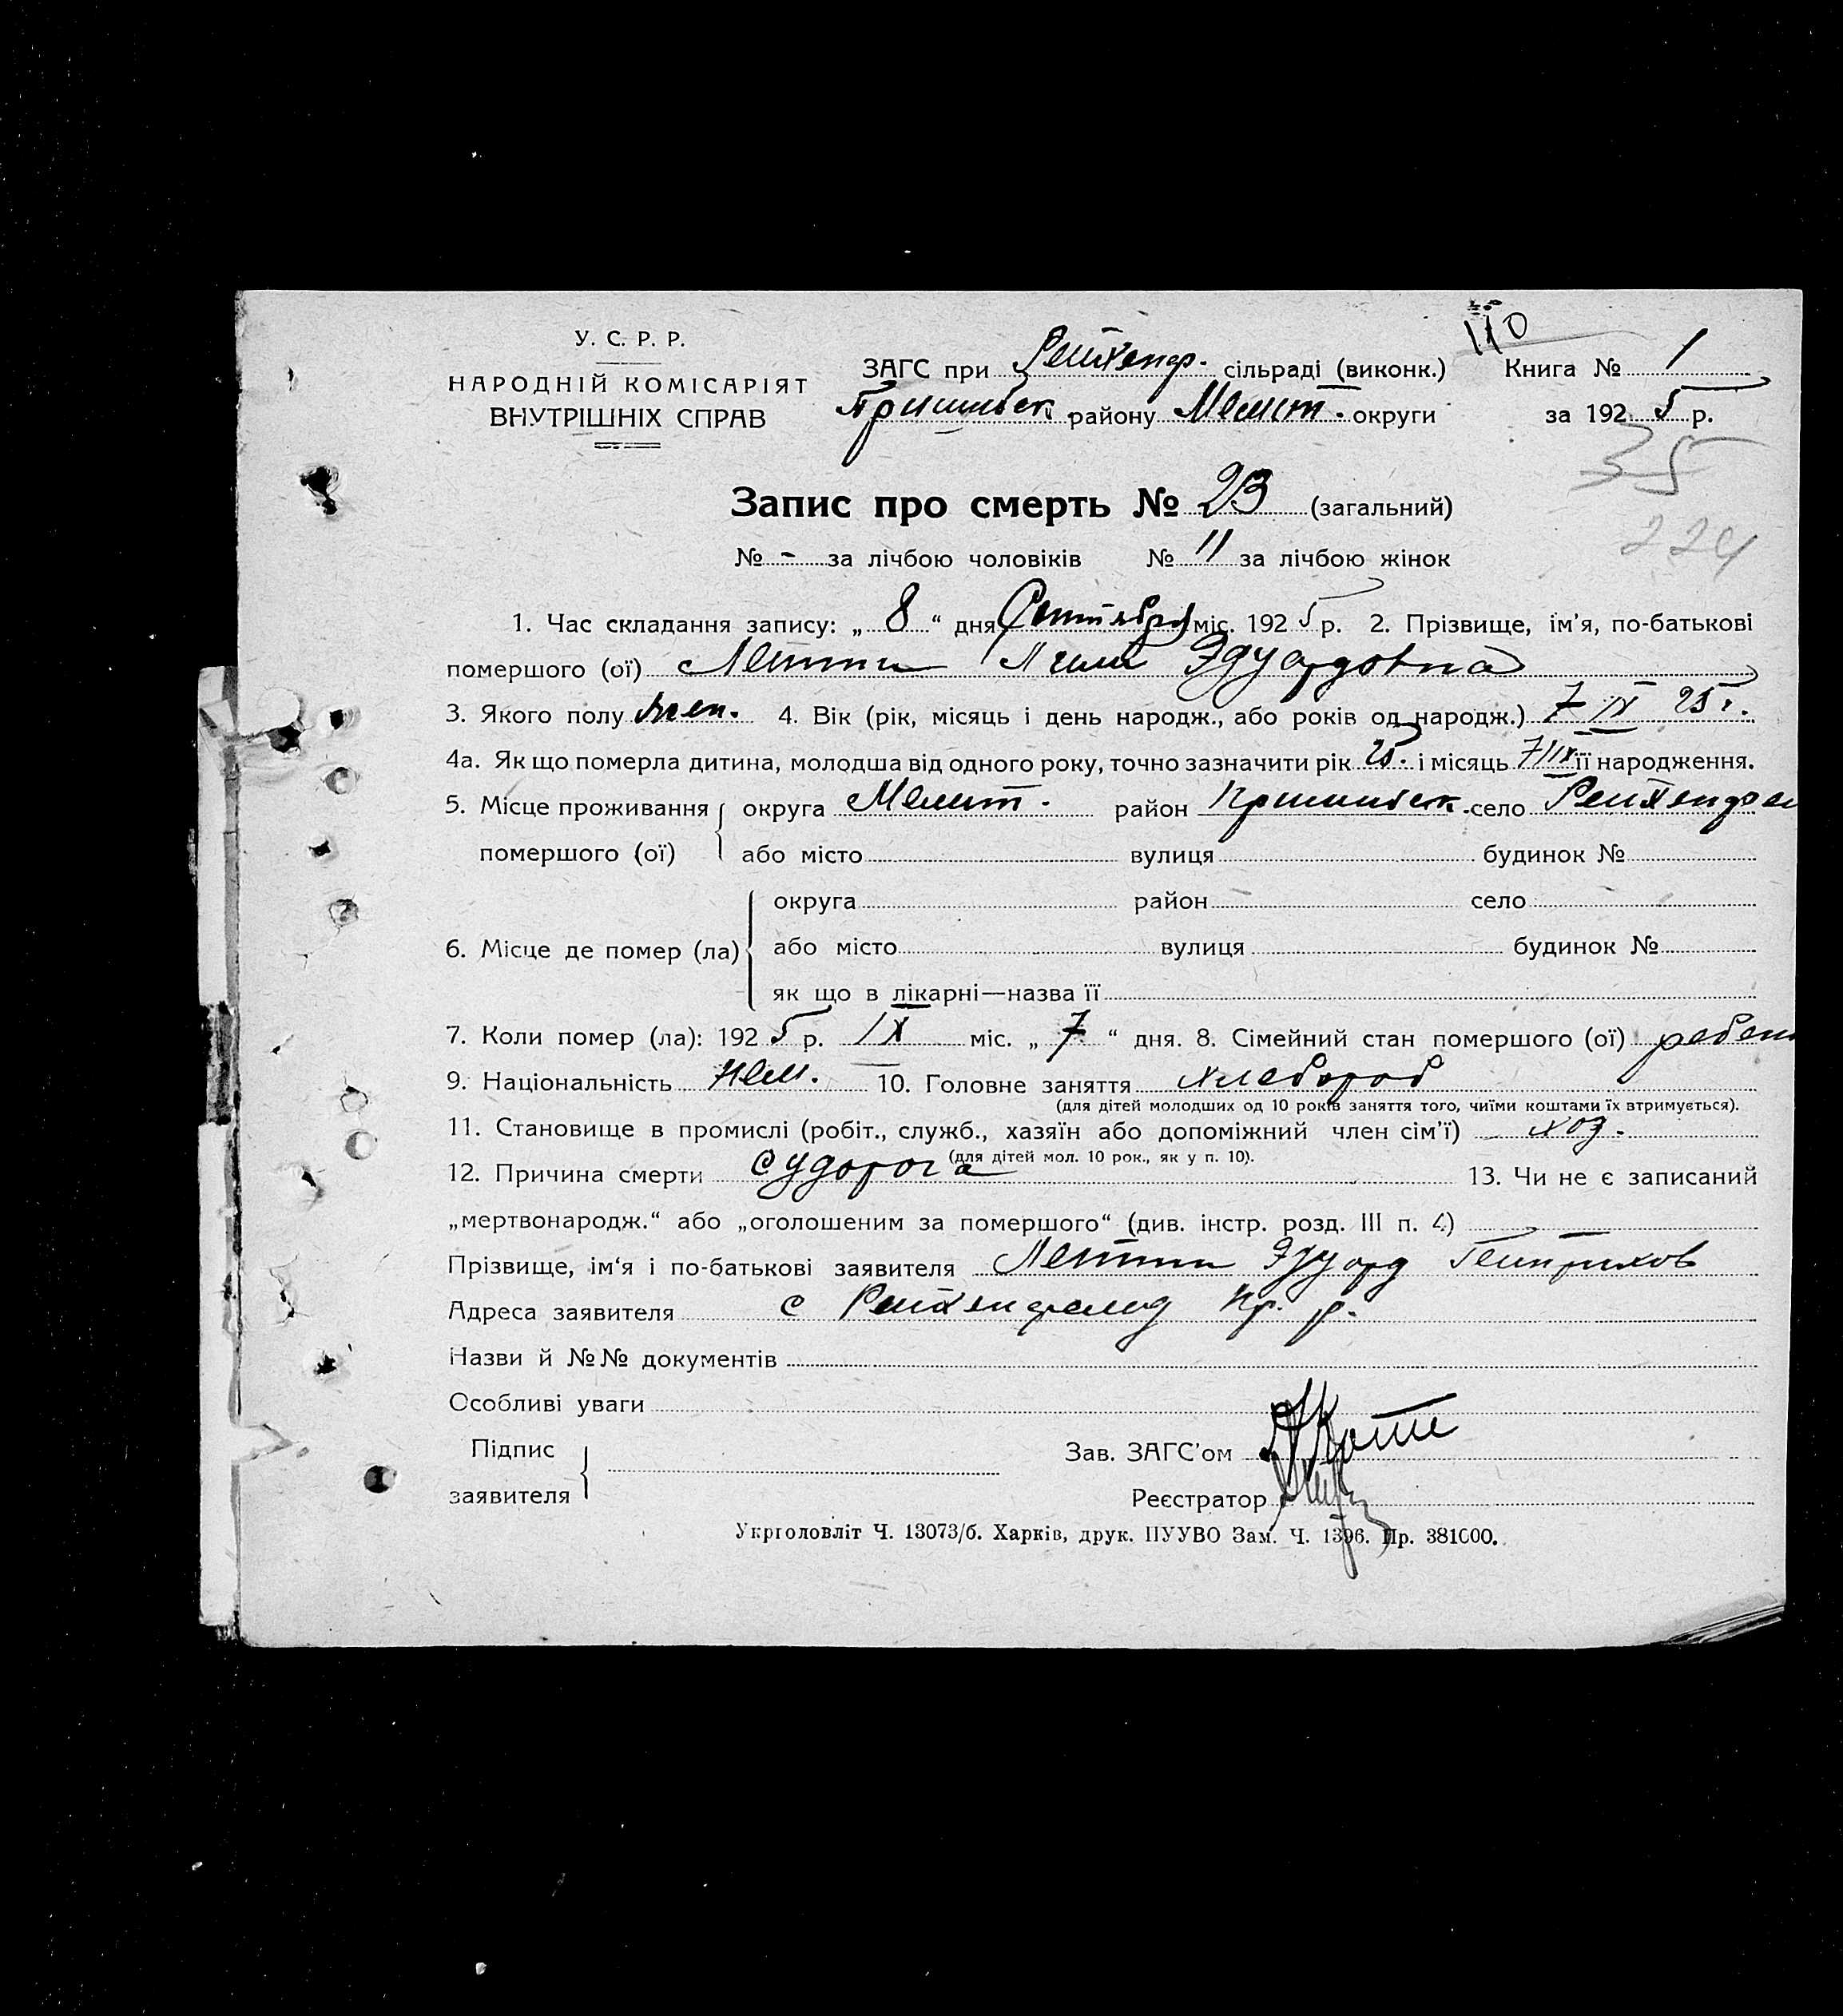 110
У. С. Р. Р.
НАРОДНІЙ КОМІСАРІЯТ
ВНУТРІШНІХ СПРАВ
ЗАГС при Рейхенф. сільраді (виконк.) Книга № 1
Пришибск. району Мелит. округи за 1925 р.
35
Запис про смерть № 23 (загальний)
224
№ - за лічбою чоловіків № 11 за лічбою жінок
1. Час складання запису: „ 8 “ дня Сентября міс. 1925 р. 2. Прізвище, ім'я, по-батькові
помершого (ої) Эдуардовна
3. Якого полу жен. 4. Вік (рік, місяць і день народж., або років од народж.) 7 IX 25 г.
4а. Як що померла дитина, молодша від одного року, точно зазначити рік 25. і місяць 7/IX її народження.
5. Місце проживання округа Мелит. район Пришибск. село Рейхенфел
помершого (ої) або місто вулиця будинок №
округа район село
6. Місце де помер (ла) або місто вулиця будинок №
як що в лікарні—назва її
7. Коли помер (ла): 1925 р. IX міс. „ 7 “ дня. 8. Сімейний стан помершого (ої) ребен
9. Національність нем. 10. Головне заняття хлебороб
(для дітей молодших од 10 років заняття того, чиїми коштами їх втримується).
11. Становище в промислі (робіт., служб., хазяїн або допоміжний член сім'ї) хоз.
(для дітей мол. 10 рок., як у п. 10).
12. Причина смерти судорога 13. Чи не є записаний
„мертвонародж.“ або „оголошеним за помершого“ (див. інстр. розд. III п. 4) -
Прізвище, ім'я і по-батькові заявителя Эдуард Генрихов
Адреса заявителя с Рейхенфельд Пр. р.
Назви й №№ документів
Особливі уваги
Підпис
заявителя
Зав. ЗАГС'ом
Реєстратор
Укрголовліт Ч. 13073/б. Харків, друк. ПУУВО Зам. Ч. 1396. Пр. 381000.